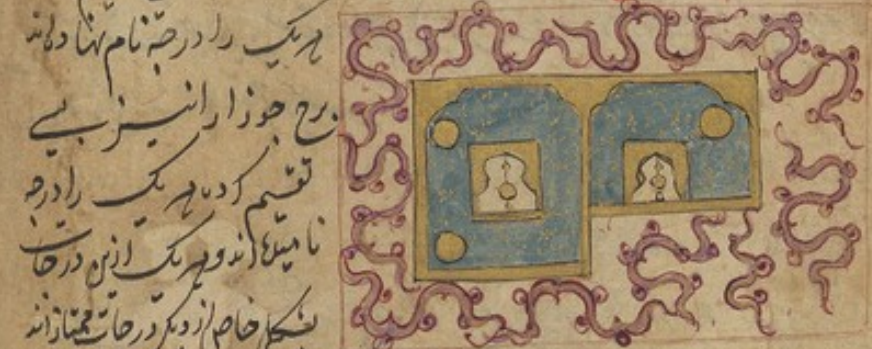 هریک را درجه نام نهاده‌اند
برج جوزا را نیز بسی
تقسیم کرده هر یک را درجه
نامیده‌اند و هر یک ازین درجات
بشکل خاص از دیگر درجات ممتازاند